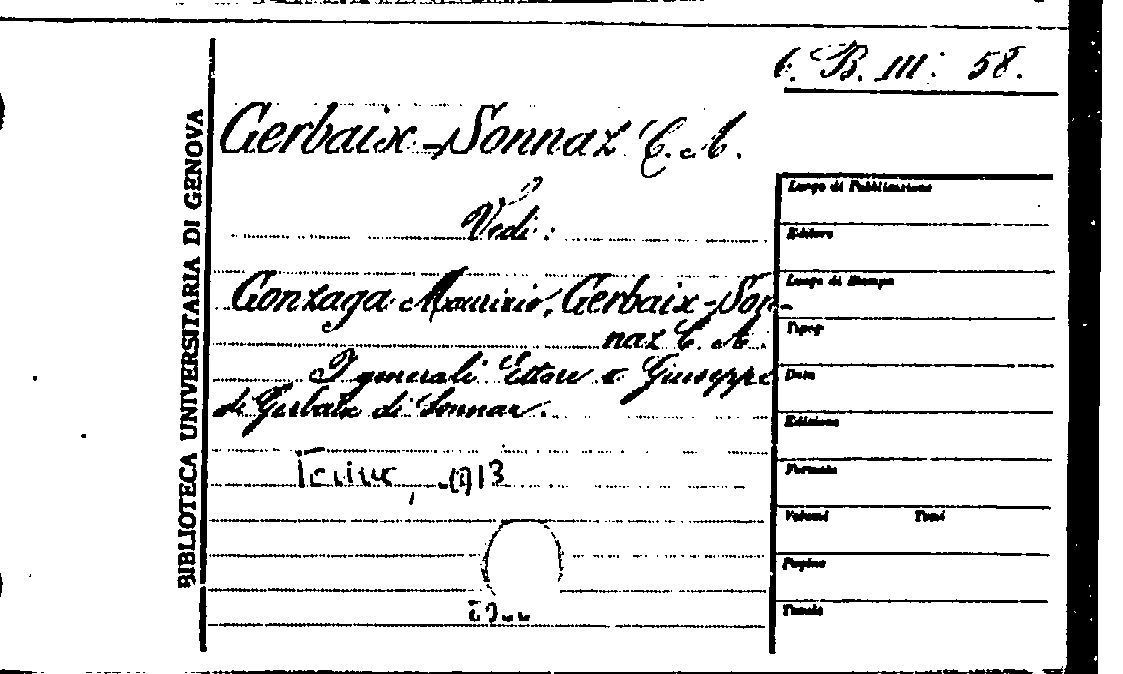 6. B. III. 58.
BIBLIOTECA UNIVERSITARIA DI GENOVA
Gerbaix-Sonnaz C. A.
Vedi:
Gonzaga Maurizio, Gerbaix-Son-
naz C. A.
I generali Ettore e Giuseppe
di Gerbaix di Sonnaz.
Torino, 1913
Luogo di Pubblicazione
Editore
Luogo di Stampa
Tipogr.
Data
Edizione
Formato
Volumi Tomi
Pagine
Tavole